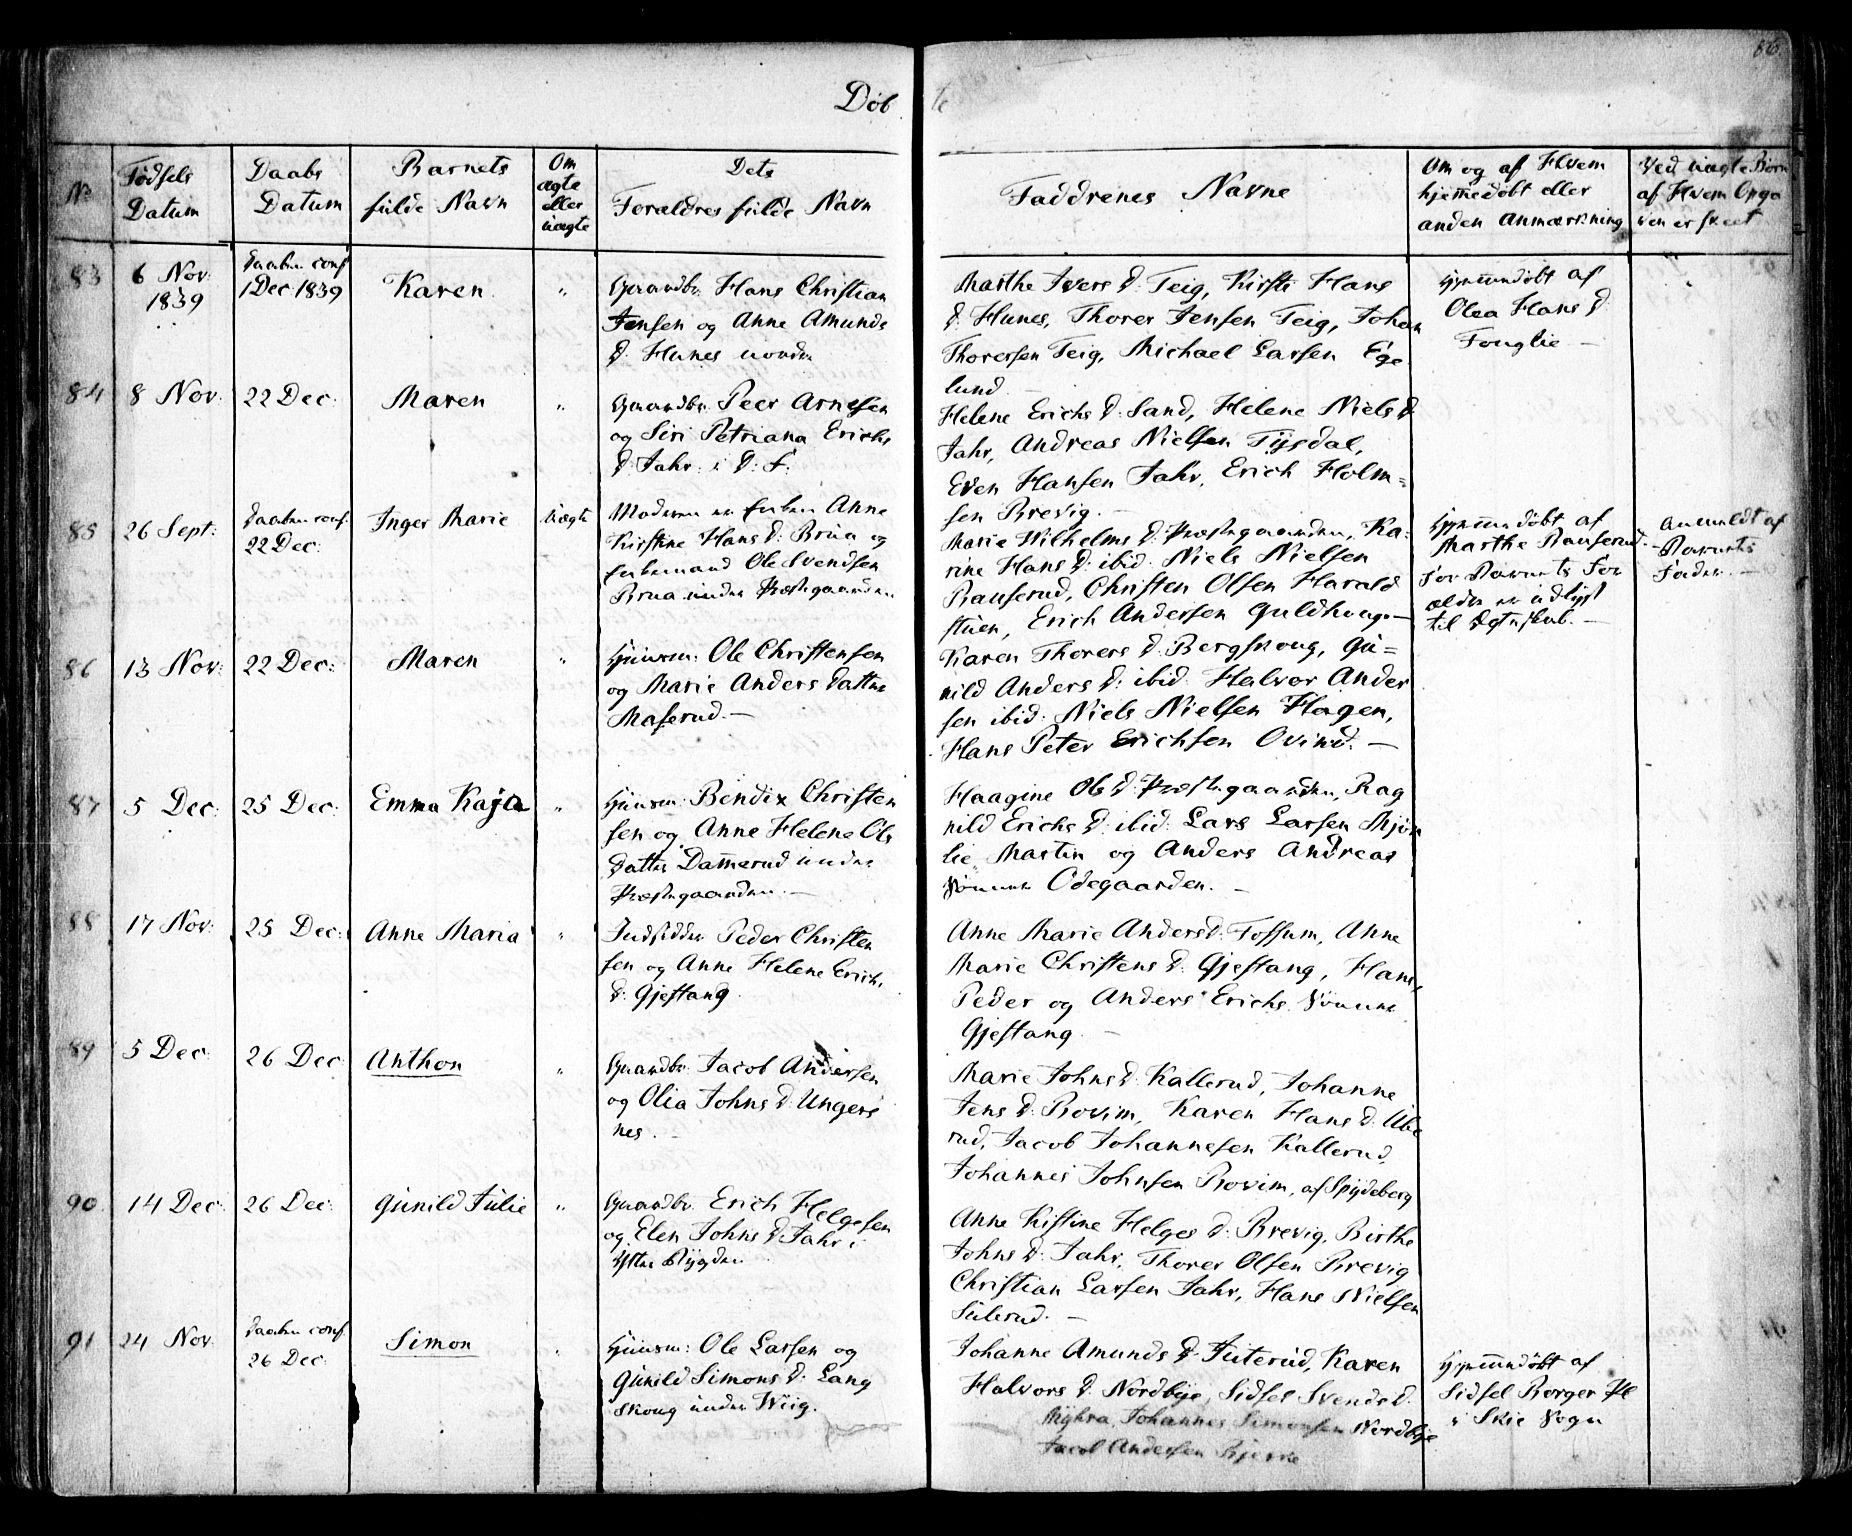 86
Døbte
No
Fødsels Datum
Daabs Datum
Barnets fulde Navn
Om ægte eller uægte
Dets Forældres fulde Navn
Faddrenes Navne
Om og af Hvem hjemmedøbt eller anden Anmærkning
Ved uægte Børn af Hvem Opgaven er skeet
83
6 Nov: 1839
Daaben conf. 1 Dec 1839
Karen
"
Gaardbr. Hans Christian
Jensen og Anne Amunds
D. Hunes nordre
Marthe Ivers D: Teig, Kirsti Hans
D. Hunes, Thorer Jensen Teig, Johan
Thoresen Teig, Michael Larsen Ege
lund
Hjemmedøbt af
Olea Hans D.
Fouglie —
84
8 Nov:
22 Dec:
Maren
"
Gaardbr. Peer Arnesen
og Siri Petriana Erichs
D: Jahr i d: S:
Helene Erichs D: Sand, Helene Niels D
Jahr, Andreas Nielsen Tysdal,
Even Hansen Jahr, Erich Holm=
sen Brevig. —
85
26 Sept:
Daaben conf. 22 Dec:
Inger Marie
Uægte
Moderen er Enken Anne
Kirstine Hans D: Brua og
Enkemand Ole Svendsen
Brua under Præstegaarden
Marie Wilhelms D: Præstegaarden, Ka=
rine Hans D: ibid. Niels Nielsen
Rauserud, Christen Olsen Harald
stuen, Erich Andersen Guldhaug —
Hjemmedøbt af
Marthe Rauserud. —
For Barnets For
ældre er udlyst
til Ægteskab. —
Anmeldt af
Barnets
Fader. —
86
13 Nov:
22 Dec:
Maren
"
Huusm: Ole Christensen
og Marie Anders Datter
Maserud. —
Karen Thorers D: Bergskoug, Gu=
nild Anders D: ibid. Halvor Ander
sen ibid: Niels Nielsen Hagen,
Hans Peter Erichsen Ovind. —
87
5 Dec:
25 Dec:
Emma Kaja
"
Huusm: Bendix Christen
sen og Anne Helene Ols
Datter Dammerud under
Præstegaarden. —
Haagine Ols D: Præstegaarden, Rag
nild Erichs D: ibid: Lars Larsen Mjør
lie, Martin og Anders Andreas
Sønner Ødegaarden. —
88
17 Nov:
25 Dec:
Anne Maria
"
Indsidder Peder Christen
sen og Anne Helene Erich,
D: Gjestang.
Anne Marie Anders D: Fossum, Anne
Marie Christens D: Gjestang, Hans,
Peder og Anders Erichs Sønner
Gjestang. —
89
5 Dec:
26 Dec:
Anthon
"
Gaardbr: Jacob Andersen
og Olia Johns D: Ungers
nes. —
Marie Johns D: Kallerud, Johanne
Jens D: Bovim, Karen Hans D: Ube
rud, Jacob Johannesen Kallerud,
Johannes Johnsen Bovim, af Spydeberg
90
14 Dec:
26 Dec:
Gunild Julie
"
Gaardbr. Erich Helgesen
og Elen Johns D: Jahr i
Ytter Bygden
Anne Kistine Helges D: Brevig, Birthe
Johns D: Jahr, Thorer Olsen Brevig
Christian Larsen Jahr, Hans Nielsen
Sulerud. —
91
24 Nov:
Daaben conf. 26 Dec:
Simon
Huusm: Ole Larsen og
Gunild Simons D: Lang
skoug under Wiig.
Johanne Amunds D: Futerud, Karen
Halvors D: Nordbye, Sidsel Svends D.
Myhra, Johannes Simonsen Nordbye
Jacob Andersen Bjerke
Hjemmedøbt af
Sidsel Borger
i Skie Sogn